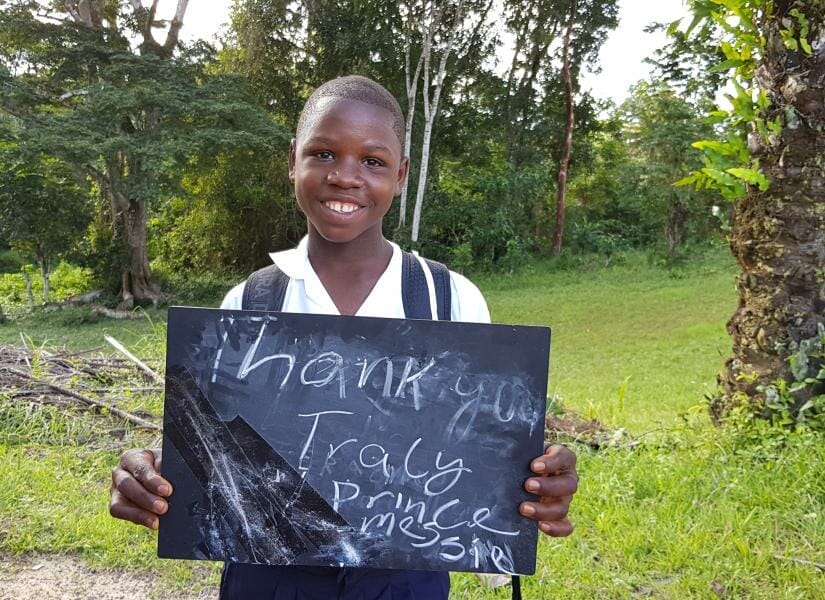 Thank you
Traly
Prince
messie